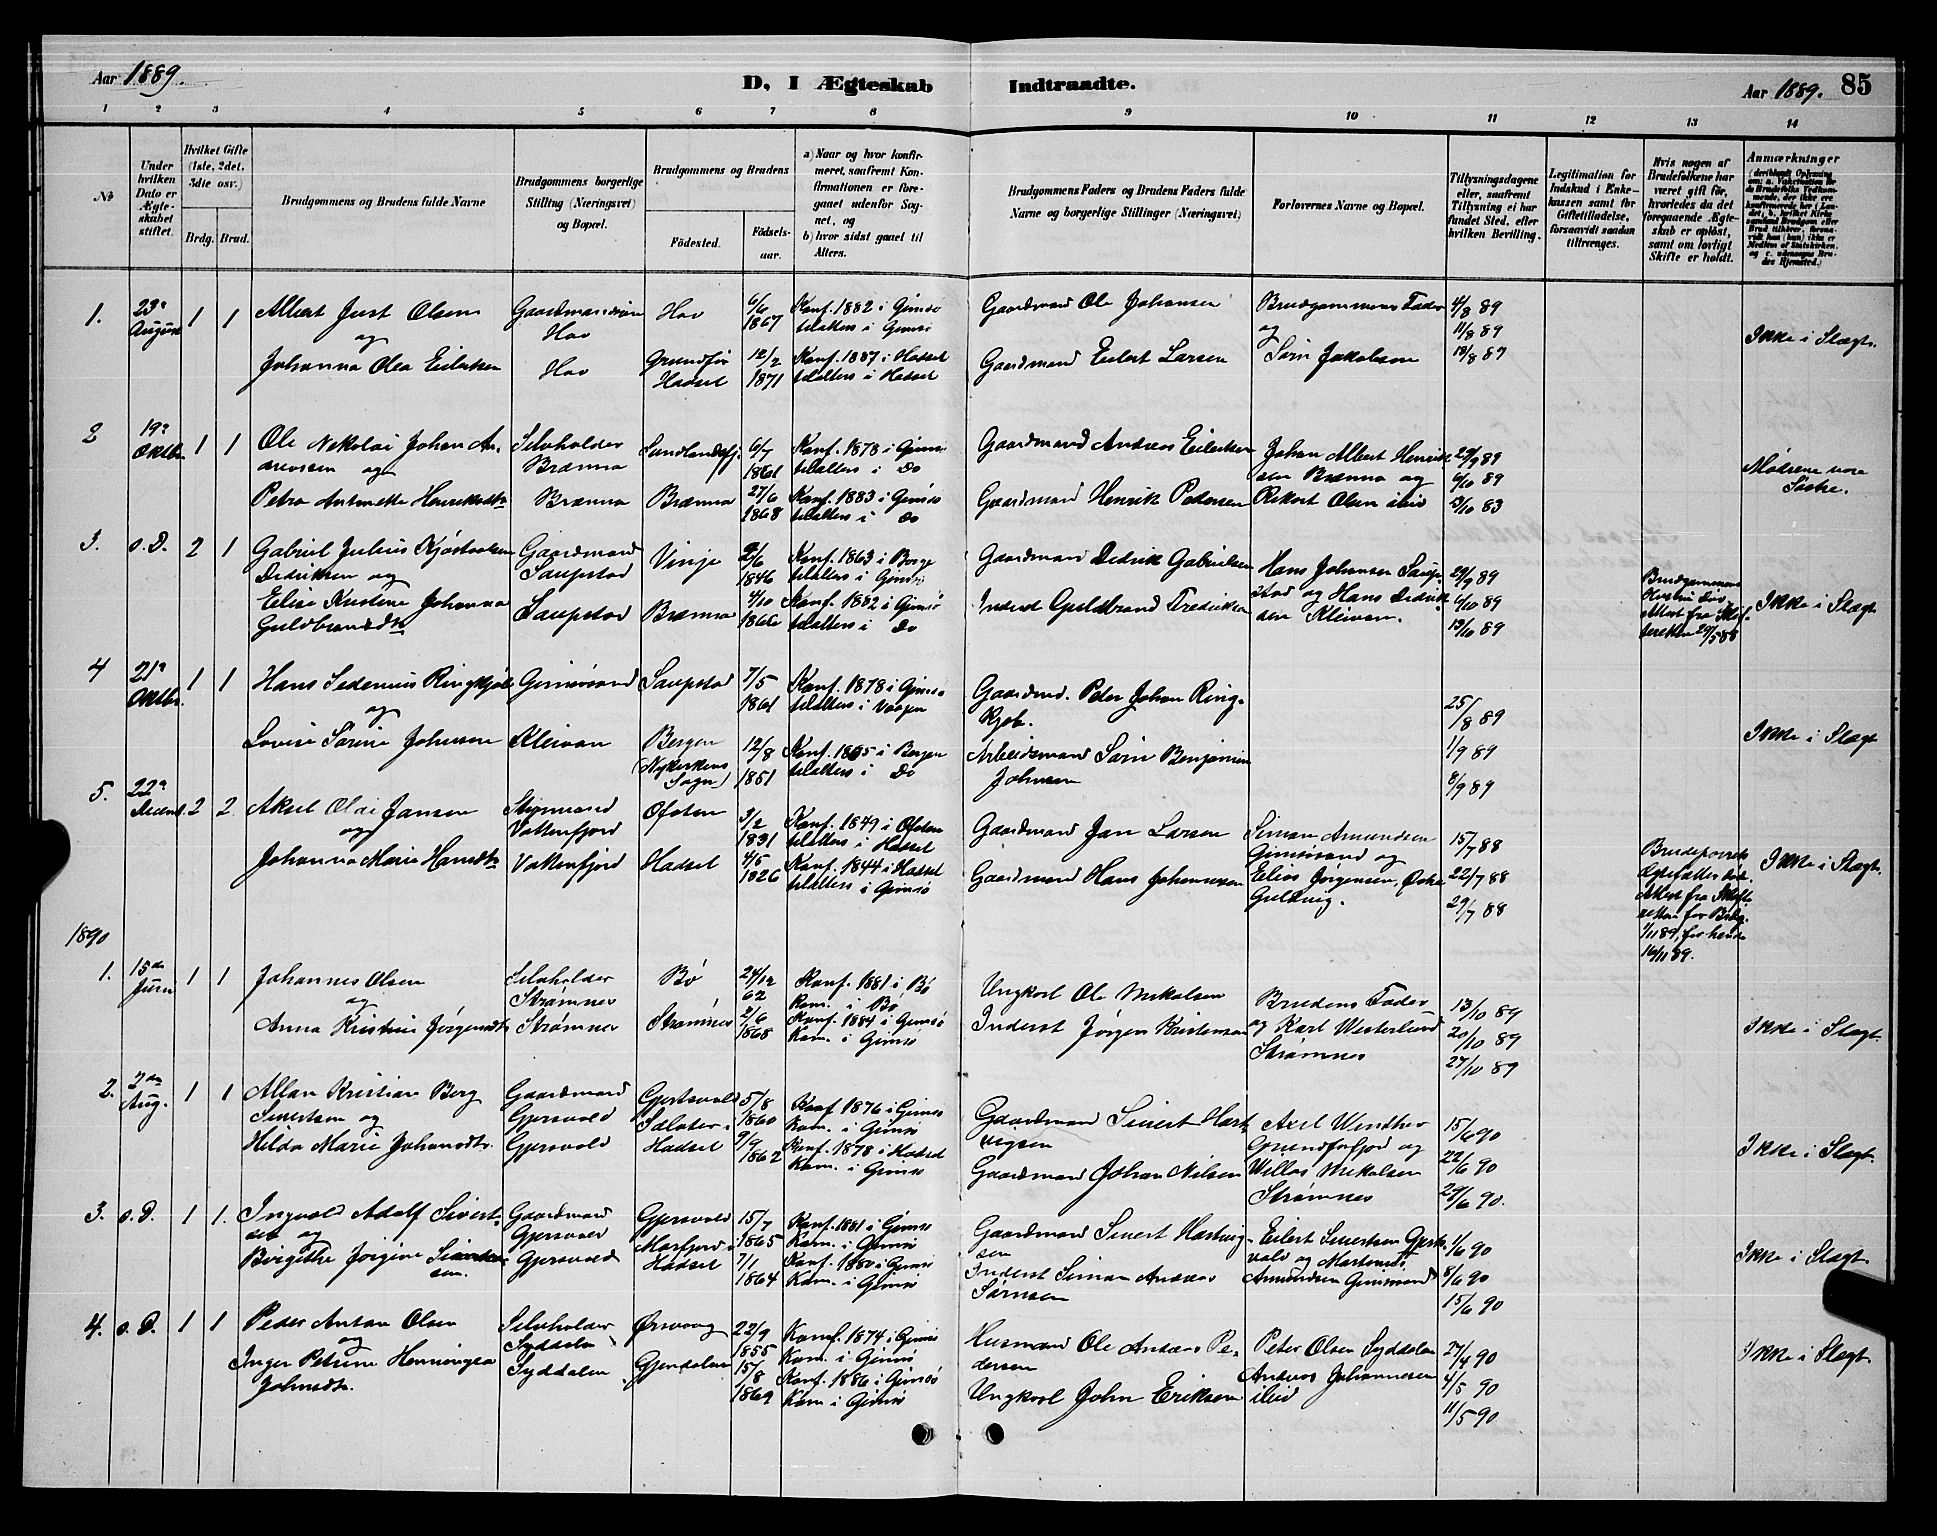 Aar 1889.
D, I Ægteskab Indtraadte.
Aar 1889. 85
1 2 3 4 5 6 7 8 9 10 11 12 13 14
No
Under hvilken Dato er Ægteskabet stiftet.
Hvilket Gifte (1ste, 2det, 3die osv.)
Brdg. Brud.
Brudgommens og Brudens fulde Navne
Brudgommens borgerlige Stilling (Næringsvei) og Bopæl.
Brudgommens og Brudens
Fødested.
Fødselsaar.
a) Naar og hvor konfirmeret, saafremt Konfirmationen er foregaaet udenfor Sognet, og
b) hvor sidst gaaet til Alters.
Brudgommens Faders og Brudens Faders fulde Navne og borgerlige Stillinger (Næringsvei)
Forlovernes Navne og Bopæl.
Tillysningsdagene eller, saafremt Tillysning ei har fundet Sted, efter hvilken Bevilling.
Legitimation for Indskud i Enkekassen samt for Giftetilladelse, forsaavidt saadan tiltrænges.
Hvis nogen af Brudefolkene har været gift før, hvorledes da det foregaaende Ægteskab er opløst, samt om lovligt Skifte er holdt.
Anmærkninger
1. 23de August 1 1 Albert Just Olsen Hov 6/6 1867 Konf. 1882 i Gimsø Gaardmand Ole Johansen Brudgommens Fader 4/8 89
og Hov til alters i Gimsø og 11/8 89 Ikke i Slægt.
Johanna Olea Eilertsen Hov Hadsel 12/2 1871 Konf. 1887 i Hadsel Gaardmand Eilert Larsen Sørn Jakobsen
til alters i Hadsel
2 19de Oktbr. 1 1 Ole Nikolai Johan An- Selveholder 6/7 1861 Konf. 1878 i Gimsø Gaardmand Andreas Eilertsen Johan Albert Henrik- 29/9 89
dreasen og Brænna til alters i Do sen Brænna og 6/10 89 Mødrene vare Søstre.
Petra Antonette Henriksdtr Brænna Brænna 27/6 1868 Konf. 1883 i Gimsø Gaardmand Henrik Pedersen Rikart Olsen ibid 13/10 83
til alters i Do
3. s. D. 2 1 Gabriel Julius Gaardmand Vinje 2/6 1846 Konf. 1863 i Borge Gaardmand Didrik Gabrielsen Hans Johansen Saup- 29/9 89
Didriksen og Saupstad til alters i Gimsø stad og Hans Didrik- 6/10 89 Ikke i Slægt
Elise Kristine Johanna Saupstad Brænna 4/10 Konf. 1882 i Gimsø Inderst Guldbrand Fredriksen sen Kleivan. 13/10 89
Guldbrandsdtr til alters i Do
4 21de Oktbr. 1 1 Hans Sedenius Ringkjøb Gimsøsand Saupstad 7/5 1861 Konf. 1878 i Gimsø Gaardmd. Peder Johan Ring- 25/8 89
og til alters i Vaagen kjøb.
Lovise Sørine Johnsen Kleivan Bergen 12/8 1851 Konf. 1865 i Bergen Arbeidsmand Sørn Benjamin 1/9 89 Ikke i Slægt
(Nykirkens Sogn) til alters i Do Johnsen 8/9 89
5. 22de Decemb. 2 2 Aksel Olai Jansen Ofoten 3/2 1831 Konf. 1849 i Ofoten Gaardmand Jan Larsen Simon Amundsen 15/7 88
og Vattenfjord til alters i Hadsel Gimsøsand og
Johanna Marie Hansdtr Vattenfjord Hadsel 4/5 1826 Konf. 1844 i Hadsel Gaardmand Hans Johannesen Elias Jørgensen, 22/7 88 Ikke i Slægt.
til alters i Gimsø Guldvig. 29/7 88
1890
1. 15de Juni 1 1 Johannes Olsen Selveholder Bø 24/12 62 Konf. 1881 i Bø Ungkarl Ole Mikalsen Brudens Fader 13/10 89
og Strømnes Kom. i Bø
Anna Kristine Jørgensdtr Strømnes Strømnes 2/6 1868 Konf. 1884 i Gimsø Inderst Jørgen Kristensen og Karl Westerlund 20/10 89 Ikke i Slægt.
Kom. i Gimsø Strømnes 27/10 89
2. 2den Aug. 1 1 Allan Kristian Berg Gaardmand Gjertsvold 5/8 1860 Konf. 1876 i Gimsø Gaardmand Sivert Hart- Axel Winther 15/6 90
Sivertsen og Gjersvold Kom. i Gimsø vigsen Grundforfjord og 22/6 90
Hilda Marie Johansdtr. Gjersvold Hadsel 9/9 1862 Konf. 1878 i Hadsel Gaardmand Johan Nilsen Willas Mikalsen 29/6 90 Ikke i Slægt.
Kom. i Gimsø Strømnes
3. s. D. 1 1. Ingvald Adolf Sivert- Gaardmand Gjersvold 15/7 1865 Konf. 1881 i Gimsø Gaardmand Sivert Hartvig- Eilert Sivertsen Gjers- 1/6 90
sen og Gjersvold Kom. i Gimsø sen vold og Martinus
Birgithe Jørgine Simonsen Gjersvold Hadsel 7/1 1864 Konf. 1880 i Gimsø Inderst Simon Andreas Amundsen Gimsøsand 8/6 90 Ikke i Slægt.
Kom. i Gimsø Sørnsen 15/6 90
4. s. D. 1 1 Peder Anton Olsen Selveholder Ørsvaag 22/9 1855 Konf. 1874 i Gimsø Husmand Ole Andreas Pe- Peter Olsen Syddalen 27/4 90
og Syddalen Kom. i Gimsø dersen Andreas Johannesen 4/5 90 Ikke i Slægt.
Inger Petrine Henningsa Syddalen Gjendalen 15/8 1869 Konf. 1886 i Gimsø Ungkarl John Eriksen ibid 11/5 90
Johnsdtr. Kom i Gimsø